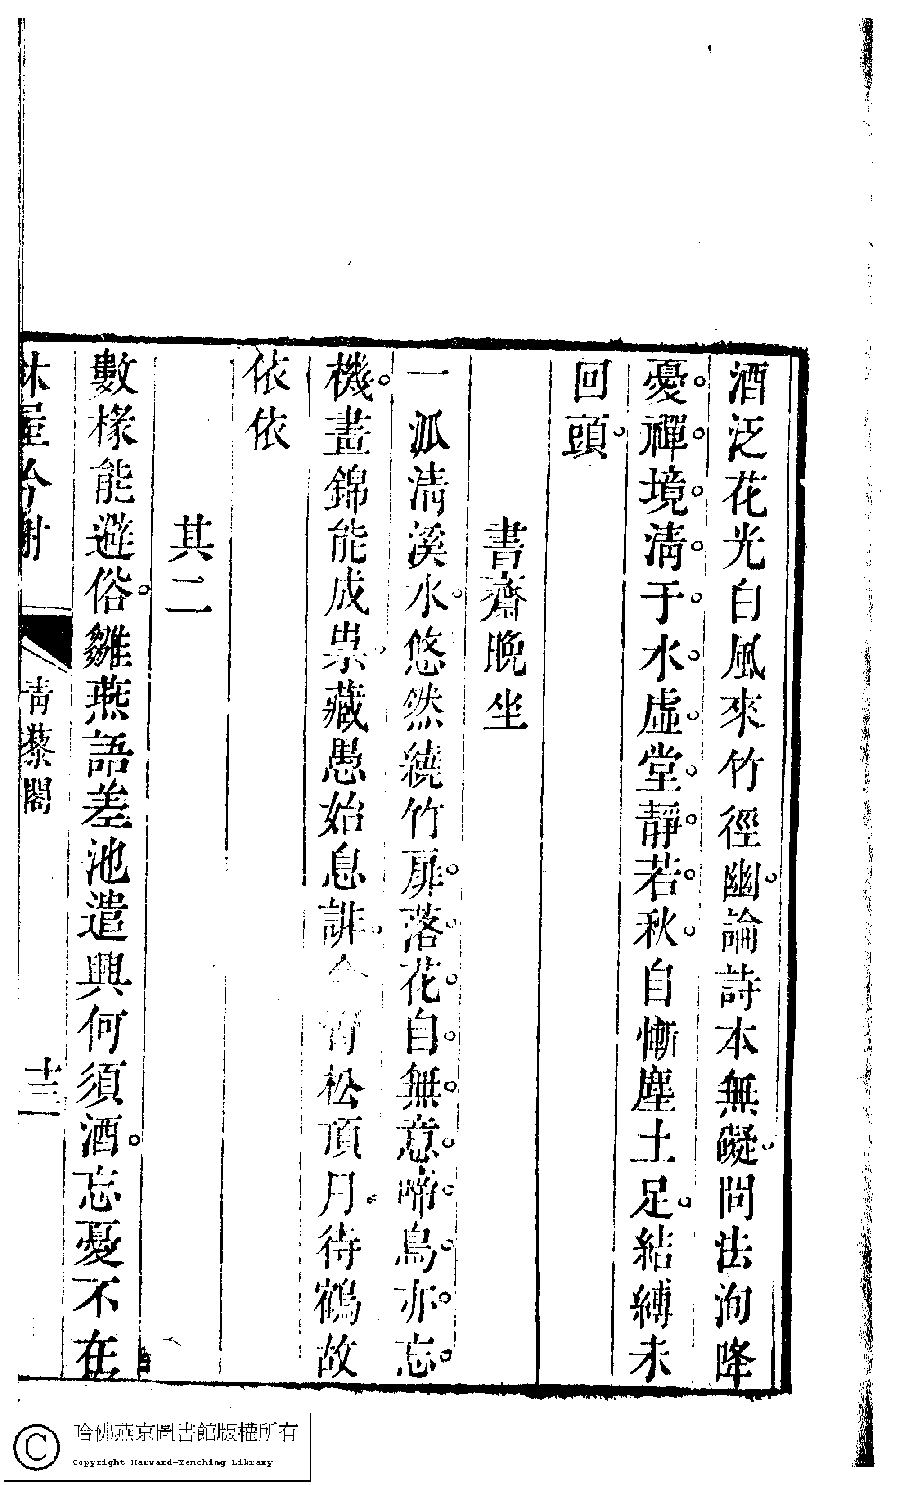 酒泛花光白風來竹徑幽論詩本無礙問法洵降
憂禪境清于水虛堂靜若秋自慚塵土足結縛未
回頭
書齋晚坐
一泒清溪水悠然繞竹扉落花自無意啼鳥亦忘
機畫錦能成祟藏愚始息誹今宵松頂月待鶴故
依依
其二
數椽能避俗雛燕語差池遣興何須酒忘憂不在
青藜閣
十三
哈佛燕京圖書館版權所有
Copyright Harvard-Yenching Library